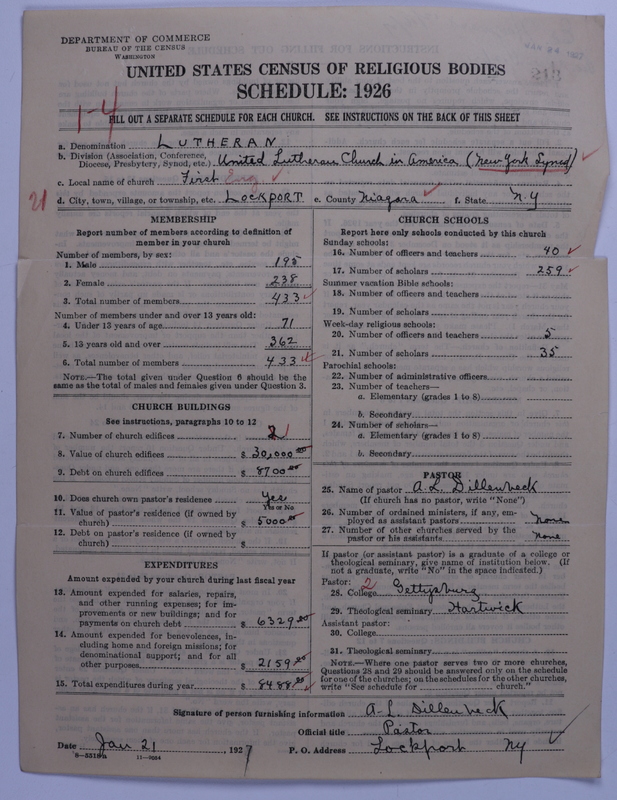 DEPARTMENT OF COMMERCE
BUREAU OF THE CENSUS
WASHINGTON
UNITED STATES CENSUS OF RELIGIOUS BODIES
SCHEDULE: 1926
1-4
FILL OUT A SEPARATE SCHEDULE FOR EACH CHURCH. SEE INSTRUCTIONS ON THE BACK OF THIS SHEET
a. Denomination LUTHERAN
b. Division (Association, Conference, Diocese, Presbytery, Synod, etc.) United Lutheran Church in America (New York Synod)
c. Local name of church First Eng
21
d. City, town, village, or township, etc. LOCKPORT e. County Niagara f. State N.Y
MEMBERSHIP
Report number of members according to definition of
member in your church
Number of members, by sex:
1. Male 195
2. Female 238
3. Total number of members 433
Number of members under and over 13 years old:
4. Under 13 years of age 71
5. 13 years old and over 362
6. Total number of members 433
NOTE.—The total given under Question 6 should be the
same as the total of males and females given under Question 3.
CHURCH BUILDINGS
See instructions, paragraphs 10 to 12
7. Number of church edifices
8. Value of church edifices $ 30,000 00
9. Debt on church edifices $ 8700 00
10. Does church own pastor's residence Yes
Yes or No
11. Value of pastor's residence (if owned by
church) $ 5000 00
12. Debt on pastor's residence (if owned by
church) $
EXPENDITURES
Amount expended by your church during last fiscal year
13. Amount expended for salaries, repairs,
and other running expenses; for im-
provements or new buildings; and for
payments on church debt $ 6329 00
14. Amount expended for benevolences, in-
cluding home and foreign missions; for
denominational support; and for all
other purposes $ 2159 00
15. Total expenditures during year $ 8488 00
CHURCH SCHOOLS
Report here only schools conducted by this church
Sunday schools:
16. Number of officers and teachers 40
17. Number of scholars 259
Summer vacation Bible schools:
18. Number of officers and teachers
19. Number of scholars
Week-day religious schools:
20. Number of officers and teachers 5
21. Number of scholars 35
Parochial schools:
22. Number of administrative officers
23. Number of teachers—
a. Elementary (grades 1 to 8)
b. Secondary
24. Number of scholars—
a. Elementary (grades 1 to 8)
b. Secondary
PASTOR
25. Name of pastor A. L. Dillenbeck
(If church has no pastor, write "None")
26. Number of ordained ministers, if any, em-
ployed as assistant pastors None
27. Number of other churches served by the
pastor or his assistants None
If pastor (or assistant pastor) is a graduate of a college or
theological seminary, give name of institution below. (If
not a graduate, write "No" in the space indicated.)
Pastor: 2
28. College Gettysburg
29. Theological seminary Hartwick
Assistant pastor:
30. College
31. Theological seminary
NOTE.—Where one pastor serves two or more churches,
Questions 28 and 29 should be answered only on the schedule
for one of the churches; on the schedules for the other churches,
write "See schedule for church."
Signature of person furnishing information A. L. Dillenbeck
Official title Pastor
Date Jan 21, 1927 P. O. Address Lockport NY
8-5319a 11-9664